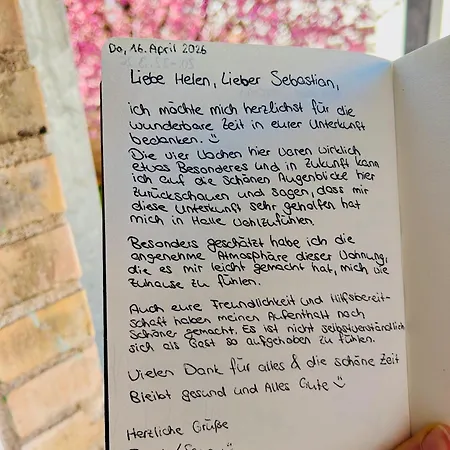 Do, 16. April 2026
Liebe Helen, Lieber Sebastian,
ich möchte mich herzlichst für die
wunderbare Zeit in eurer Unterkunft
bedanken. ☺
Die vier Wochen hier waren wirklich
etwas Besonderes und in Zukunft kann
ich auf die schönen Augenblicke hier
zurückschauen und sagen, dass mir
diese Unterkunft sehr geholfen hat
mich in Halle wohlzufühlen.
Besonders geschätzt habe ich die
angenehme Atmosphäre dieser Wohnung,
die es mir leicht gemacht hat, mich wie
zuhause zu fühlen.
Auch eure Freundlichkeit und Hilfsbereit-
schaft haben meinen Aufenthalt noch
schöner gemacht. Es ist nicht selbstverständlich
sich als Gast so aufgehoben zu fühlen.
Vielen Dank für alles & die schöne Zeit
Bleibt gesund und Alles Gute ☺
Herzliche Grüße